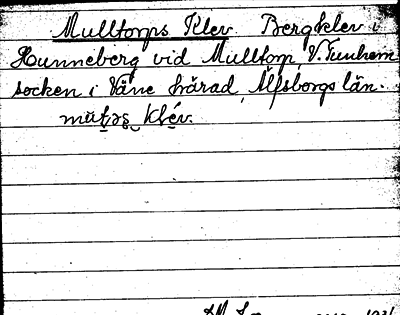 Mulltorps Klev. Bergklev i
Hunneberg vid Mulltorp, V. Tunhem
socken i Väne härad, Älfsborgs län.